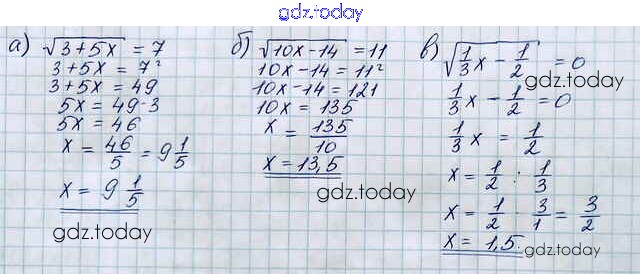 gdz.today
а) √(3+5x) = 7
3+5x = 7²
3+5x = 49
5x = 49-3
5x = 46
x = 46/5 = 9 1/5
x = 9 1/5
gdz.today
б) √(10x-14) = 11
10x-14 = 11²
10x-14 = 121
10x = 135
x = 135/10
x = 13,5
gdz.today
в) √(1/3 x - 1/2) = 0
gdz.today
1/3 x - 1/2 = 0
1/3 x = 1/2
x = 1/2 : 1/3
x = 1/2 · 3/1 = 3/2
x = 1,5.
gdz.today